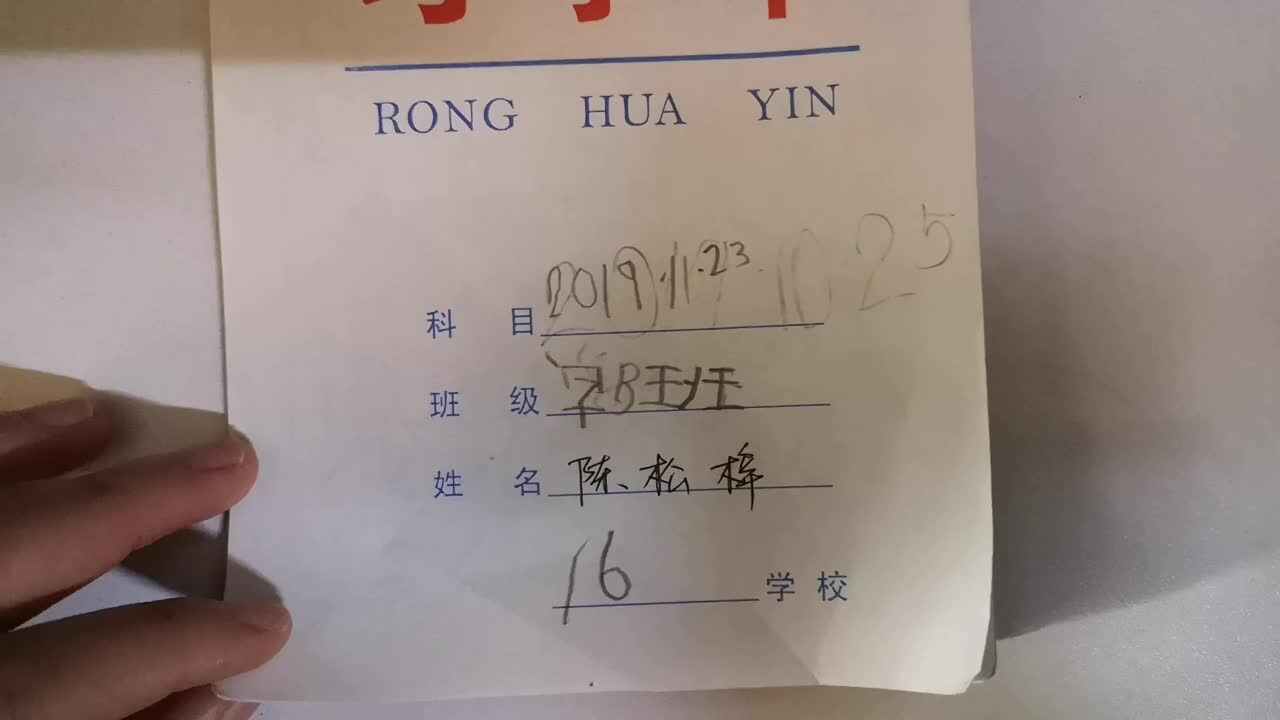 RONG HUA YIN
科 目 2019.11.23 10 25
班 级 学B王班
姓 名 陈松梓
16 学校